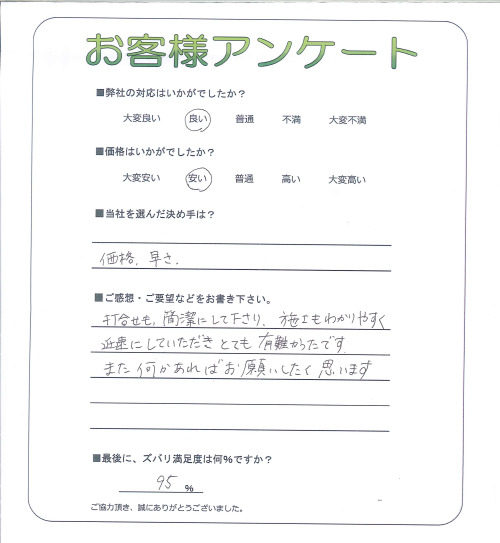 お客様アンケート
■弊社の対応はいかがでしたか？
大変良い 良い 普通 不満 大変不満
■価格はいかがでしたか？
大変安い 安い 普通 高い 大変高い
■当社を選んだ決め手は？
価格、早さ、
■ご感想・ご要望などをお書き下さい。
打合せも、簡潔にして下さり、施工もわかりやすく
にしていただき とても 有難かったです。
また 何かあれば お願いしたく 思います
■最後に、ズバリ満足度は何％ですか？
95 ％
ご協力頂き、誠にありがとうございました。